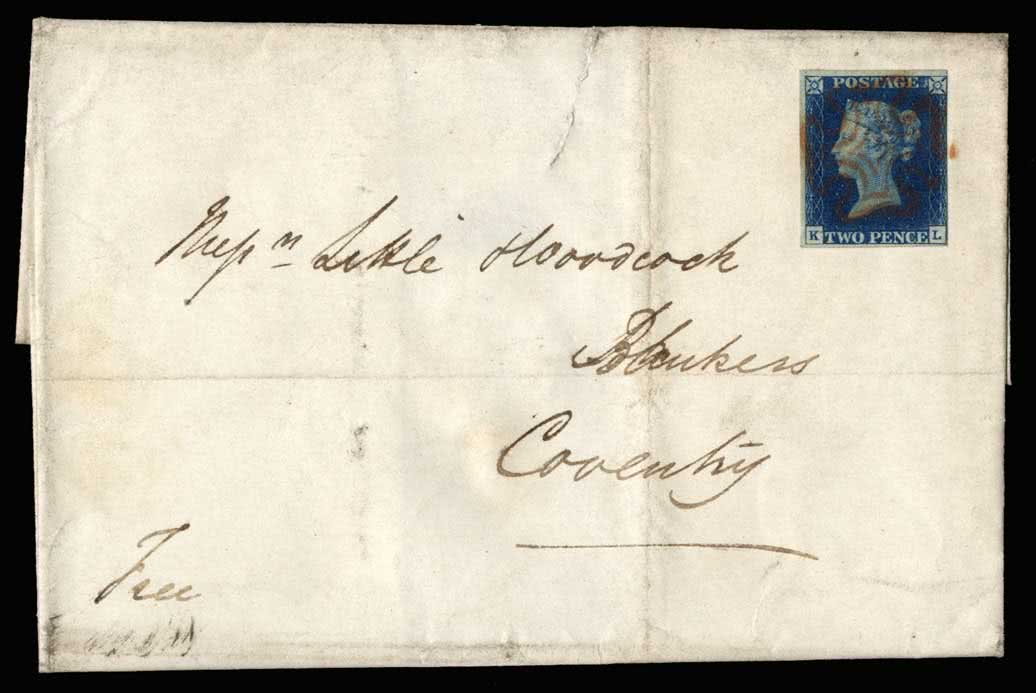 POSTAGE
K TWO PENCE L
Messrs Little & Woodcock
Bankers
Coventry
Free